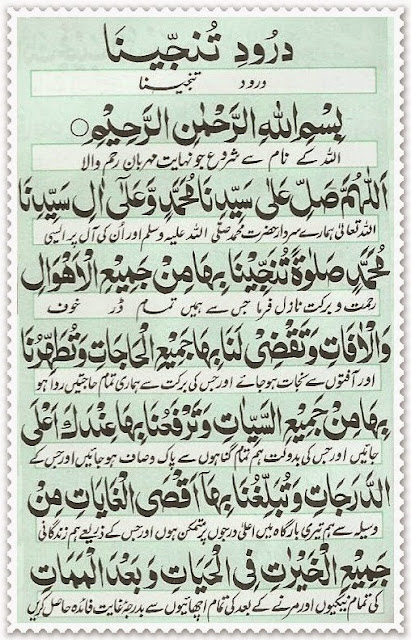 درُودِ تُنَجِّينَا
درود تنجینا
بِسْمِ اللهِ الرَّحْمٰنِ الرَّحِيْمِ ○
اللہ کے نام سے شروع جو نہایت مہربان رحم والا
اَللّٰهُمَّ صَلِّ عَلٰى سَيِّدِنَا مُحَمَّدٍ وَّعَلٰٓى اٰلِ سَيِّدِنَا
اللہ تعالیٰ ہمارے سردار حضرت محمد صلی اللہ علیہ وسلم اور اُن کی آل پر ایسی
مُحَمَّدٍ صَلٰوةً تُنَجِّيْنَا بِهَا مِنْ جَمِيْعِ الْاَهْوَالِ
رحمت و برکت نازل فرما جس سے ہمیں تمام ڈر خوف
وَالْاٰفَاتِ وَتَقْضِىْ لَنَا بِهَا جَمِيْعَ الْحَاجَاتِ وَتُطَهِّرُنَا
اور آفتوں سے نجات ہو جائے اور جس کی برکت سے ہماری تمام حاجتیں روا ہو
بِهَا مِنْ جَمِيْعِ السَّيِّاٰتِ وَتَرْفَعُنَا بِهَا عِنْدَكَ اَعْلَى
جائیں اور جس کی بدولت ہم تمام گناہوں سے پاک وصاف ہو جائیں اور جس کے
الدَّرَجَاتِ وَتُبَلِّغُنَا بِهَآ اَقْصَى الْغَايَاتِ مِنْ
وسیلہ سے ہم تیری بارگاہ میں اعلیٰ درجوں پر متمکن ہوں اور جس کے ذریعے ہم زندگانی
جَمِيْعِ الْخَيْرٰتِ فِى الْحَيَاتِ وَبَعْدَ الْمَمَاتِ
کی تمام نیکیوں اور مرنے کے بعد کی تمام اچھائیوں سے بدرجہ غایت فائدہ حاصل کریں